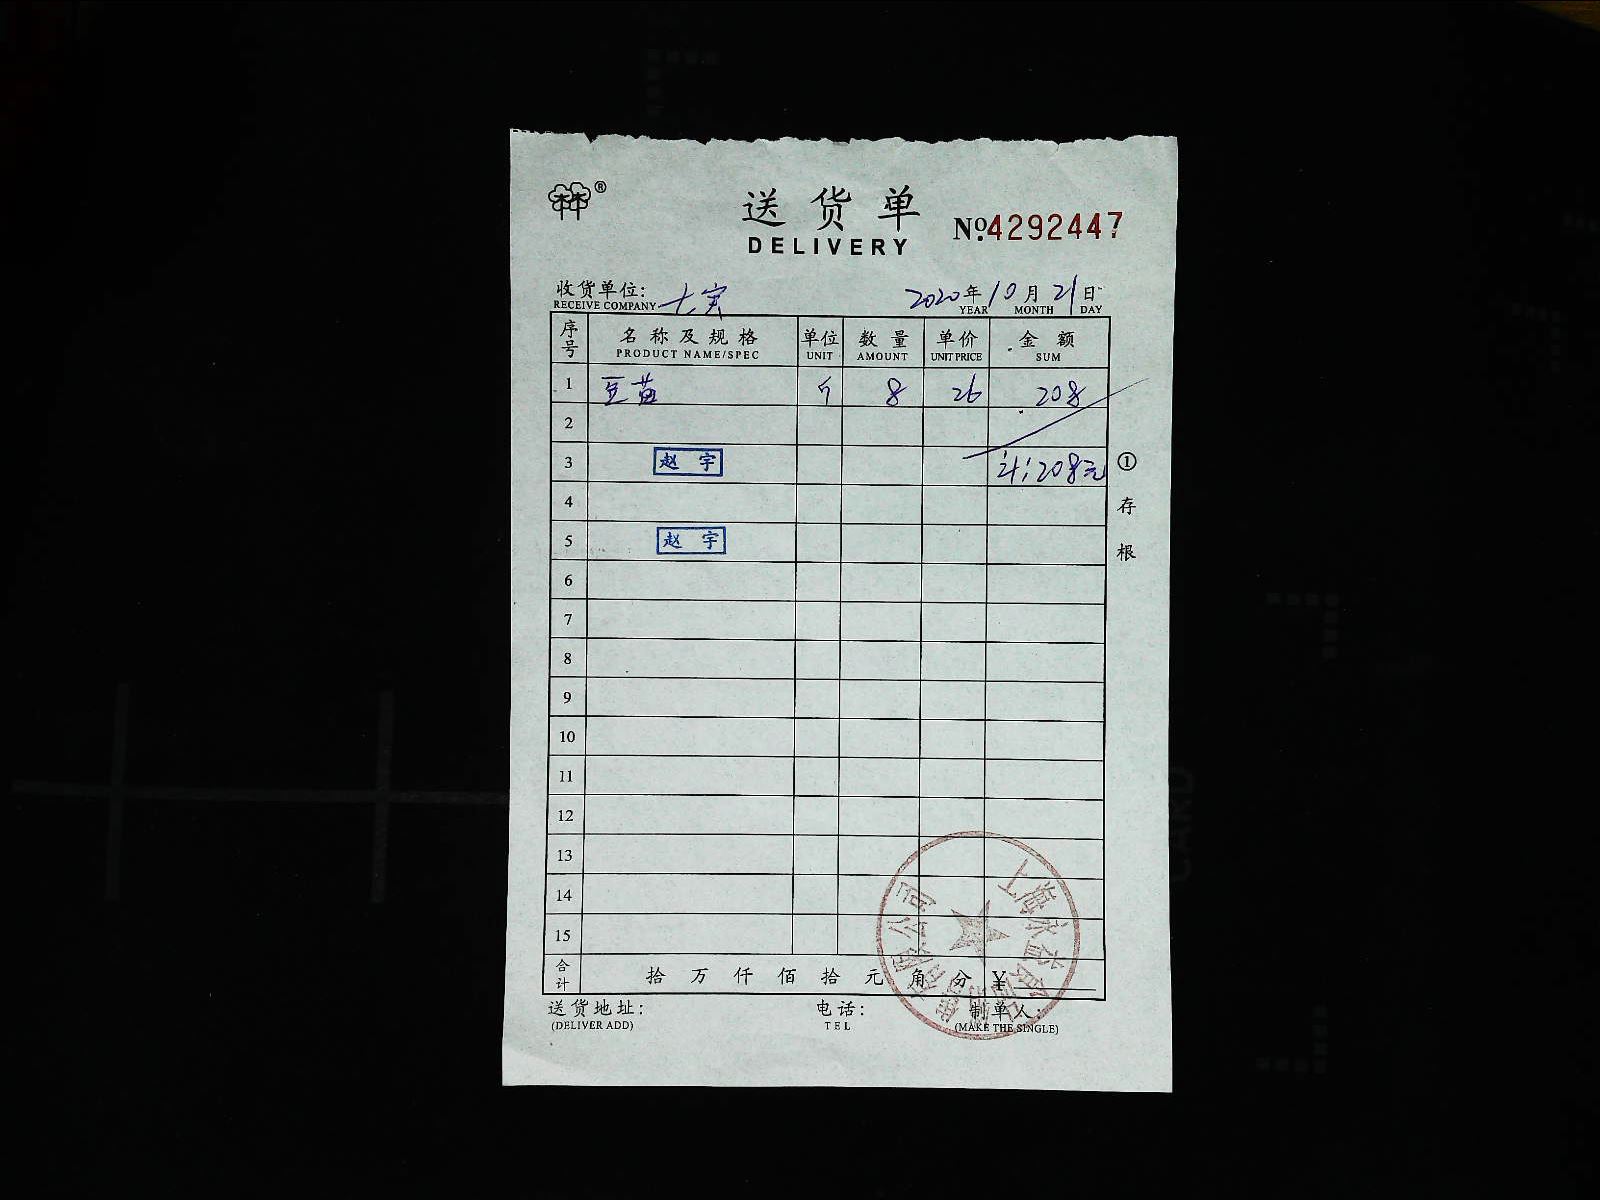 ®
送货单
DELIVERY
№4292447
收货单位: 七实
RECEIVE COMPANY
2020年10月21日
YEAR MONTH DAY
序号 名称及规格 单位 数量 单价 金额
PRODUCT NAME/SPEC UNIT AMOUNT UNIT PRICE SUM
1 豆苗 斤 8 26 208
2
3 赵宇 计:208元
4
5 赵宇
6
7
8
9
10
11
12
13
14
15
合计 拾万仟佰拾元角分 ¥
送货地址: 电话: 制单人:
(DELIVER ADD) TEL (MAKE THE SINGLE)
①存根
上海永益
有限公司